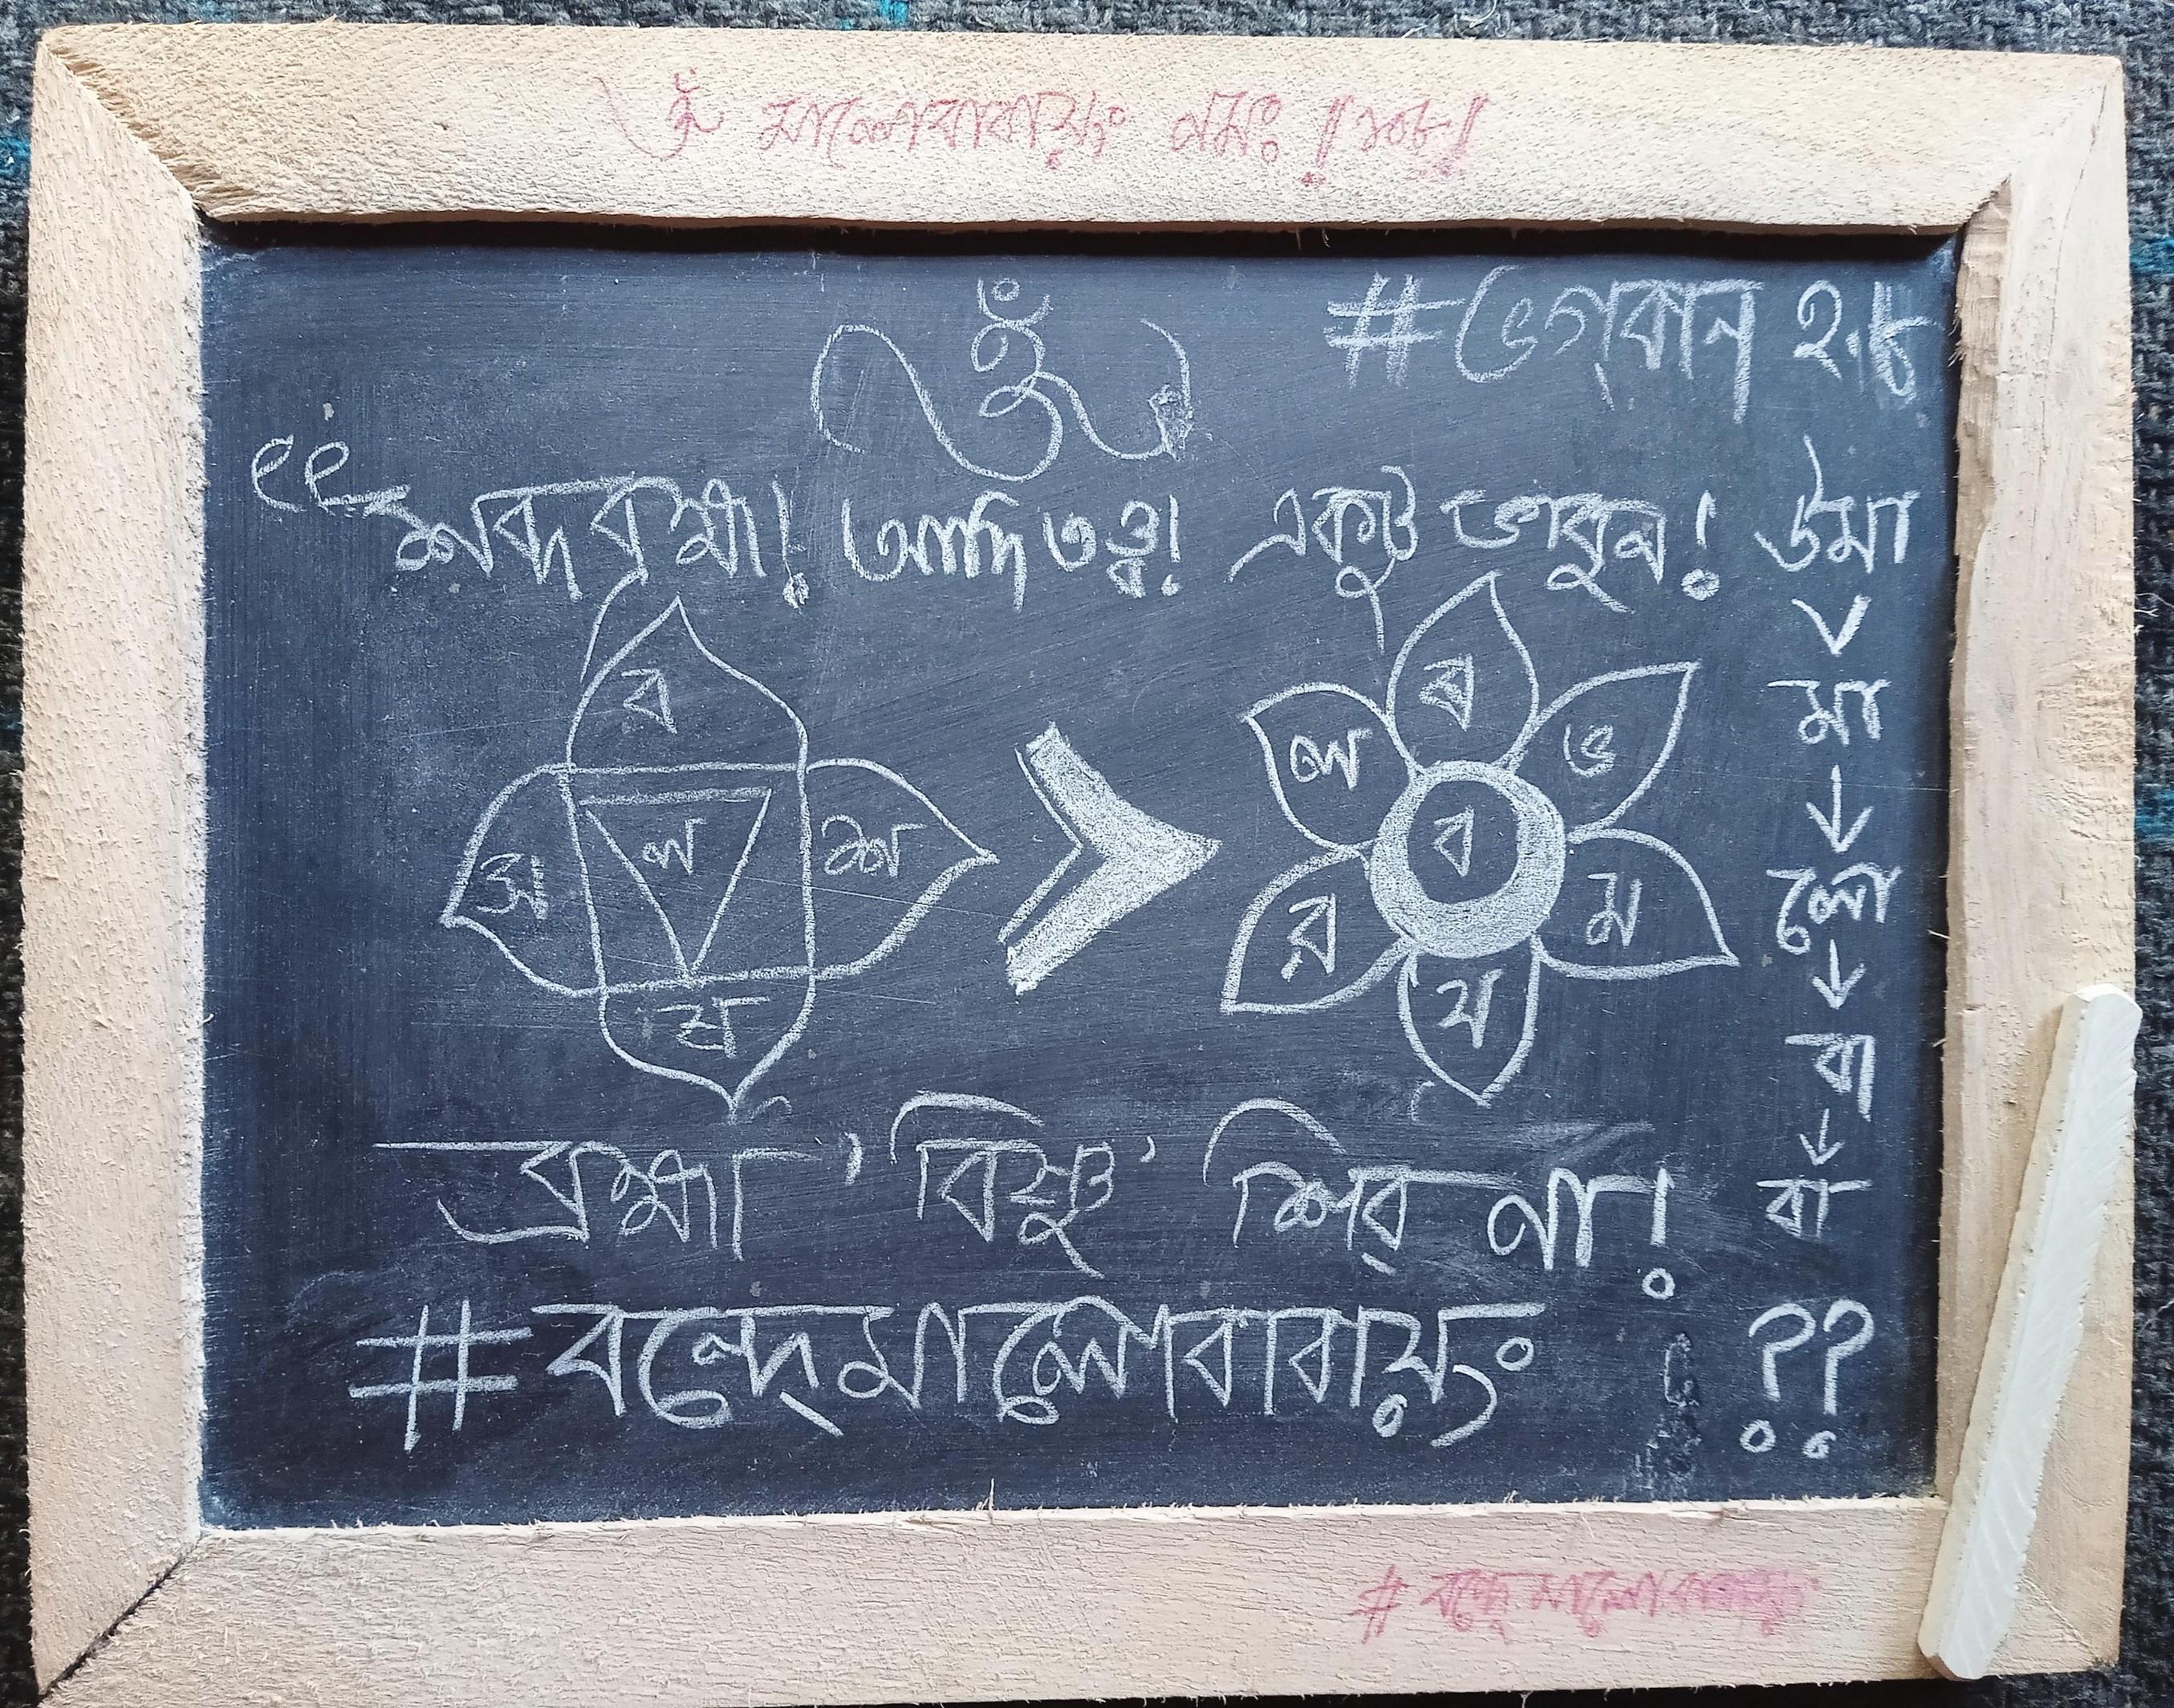 ওঁ মালোবাবায়ং নমঃ॥১০৮॥
ওঁ
#ভগবান ২.৮
শব্দ ব্রহ্ম! আদি তত্ত্ব! একটু ভাবুন! উমা
ব
স ল শ
ষ
ৰ
ল ভ
ব
র ম
য
মা
লো
বা
বা
ব্রহ্মা বিষ্ণু শিব না!
??
#বন্দেমালোবাবায়ং
#বন্দেমালোবাবায়ং